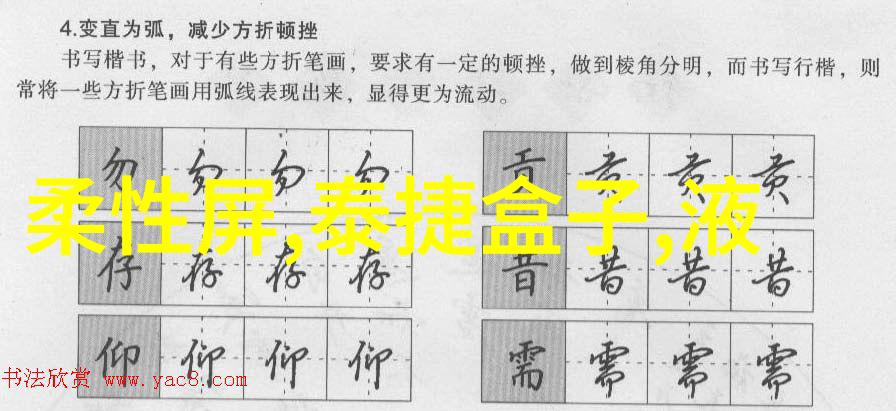 4.变直为弧，减少方折顿挫
书写楷书，对于有些方折笔画，要求有一定的顿挫，做到棱角分明，而书写行楷，则
常将一些方折笔画用弧线表现出来，显得更为流动。
勿 勿 勿 勿 贡 贡 贡 贡
柔性屏,泰捷盒子,液
存 存 存 存 昔 昔 昔 昔
仰 仰 仰 仰 需 需 需 需
书法欣赏 www.yac8.com